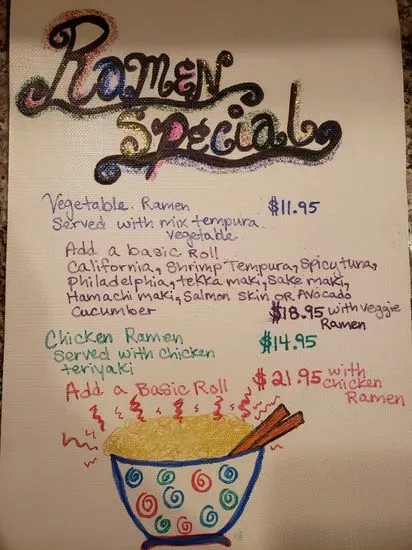 Ramen
Special
Vegetable Ramen $11.95
Served with mix tempura
vegetable
Add a basic Roll
California, Shrimp Tempura, Spicy tuna,
Philadelphia, tekka maki, Sake maki,
Hamachi maki, Salmon Skin OR Avocado
Cucumber $18.95 with veggie
Ramen
Chicken Ramen $14.95
Served with chicken
teriyaki
Add a Basic Roll $21.95 with
chicken
Ramen